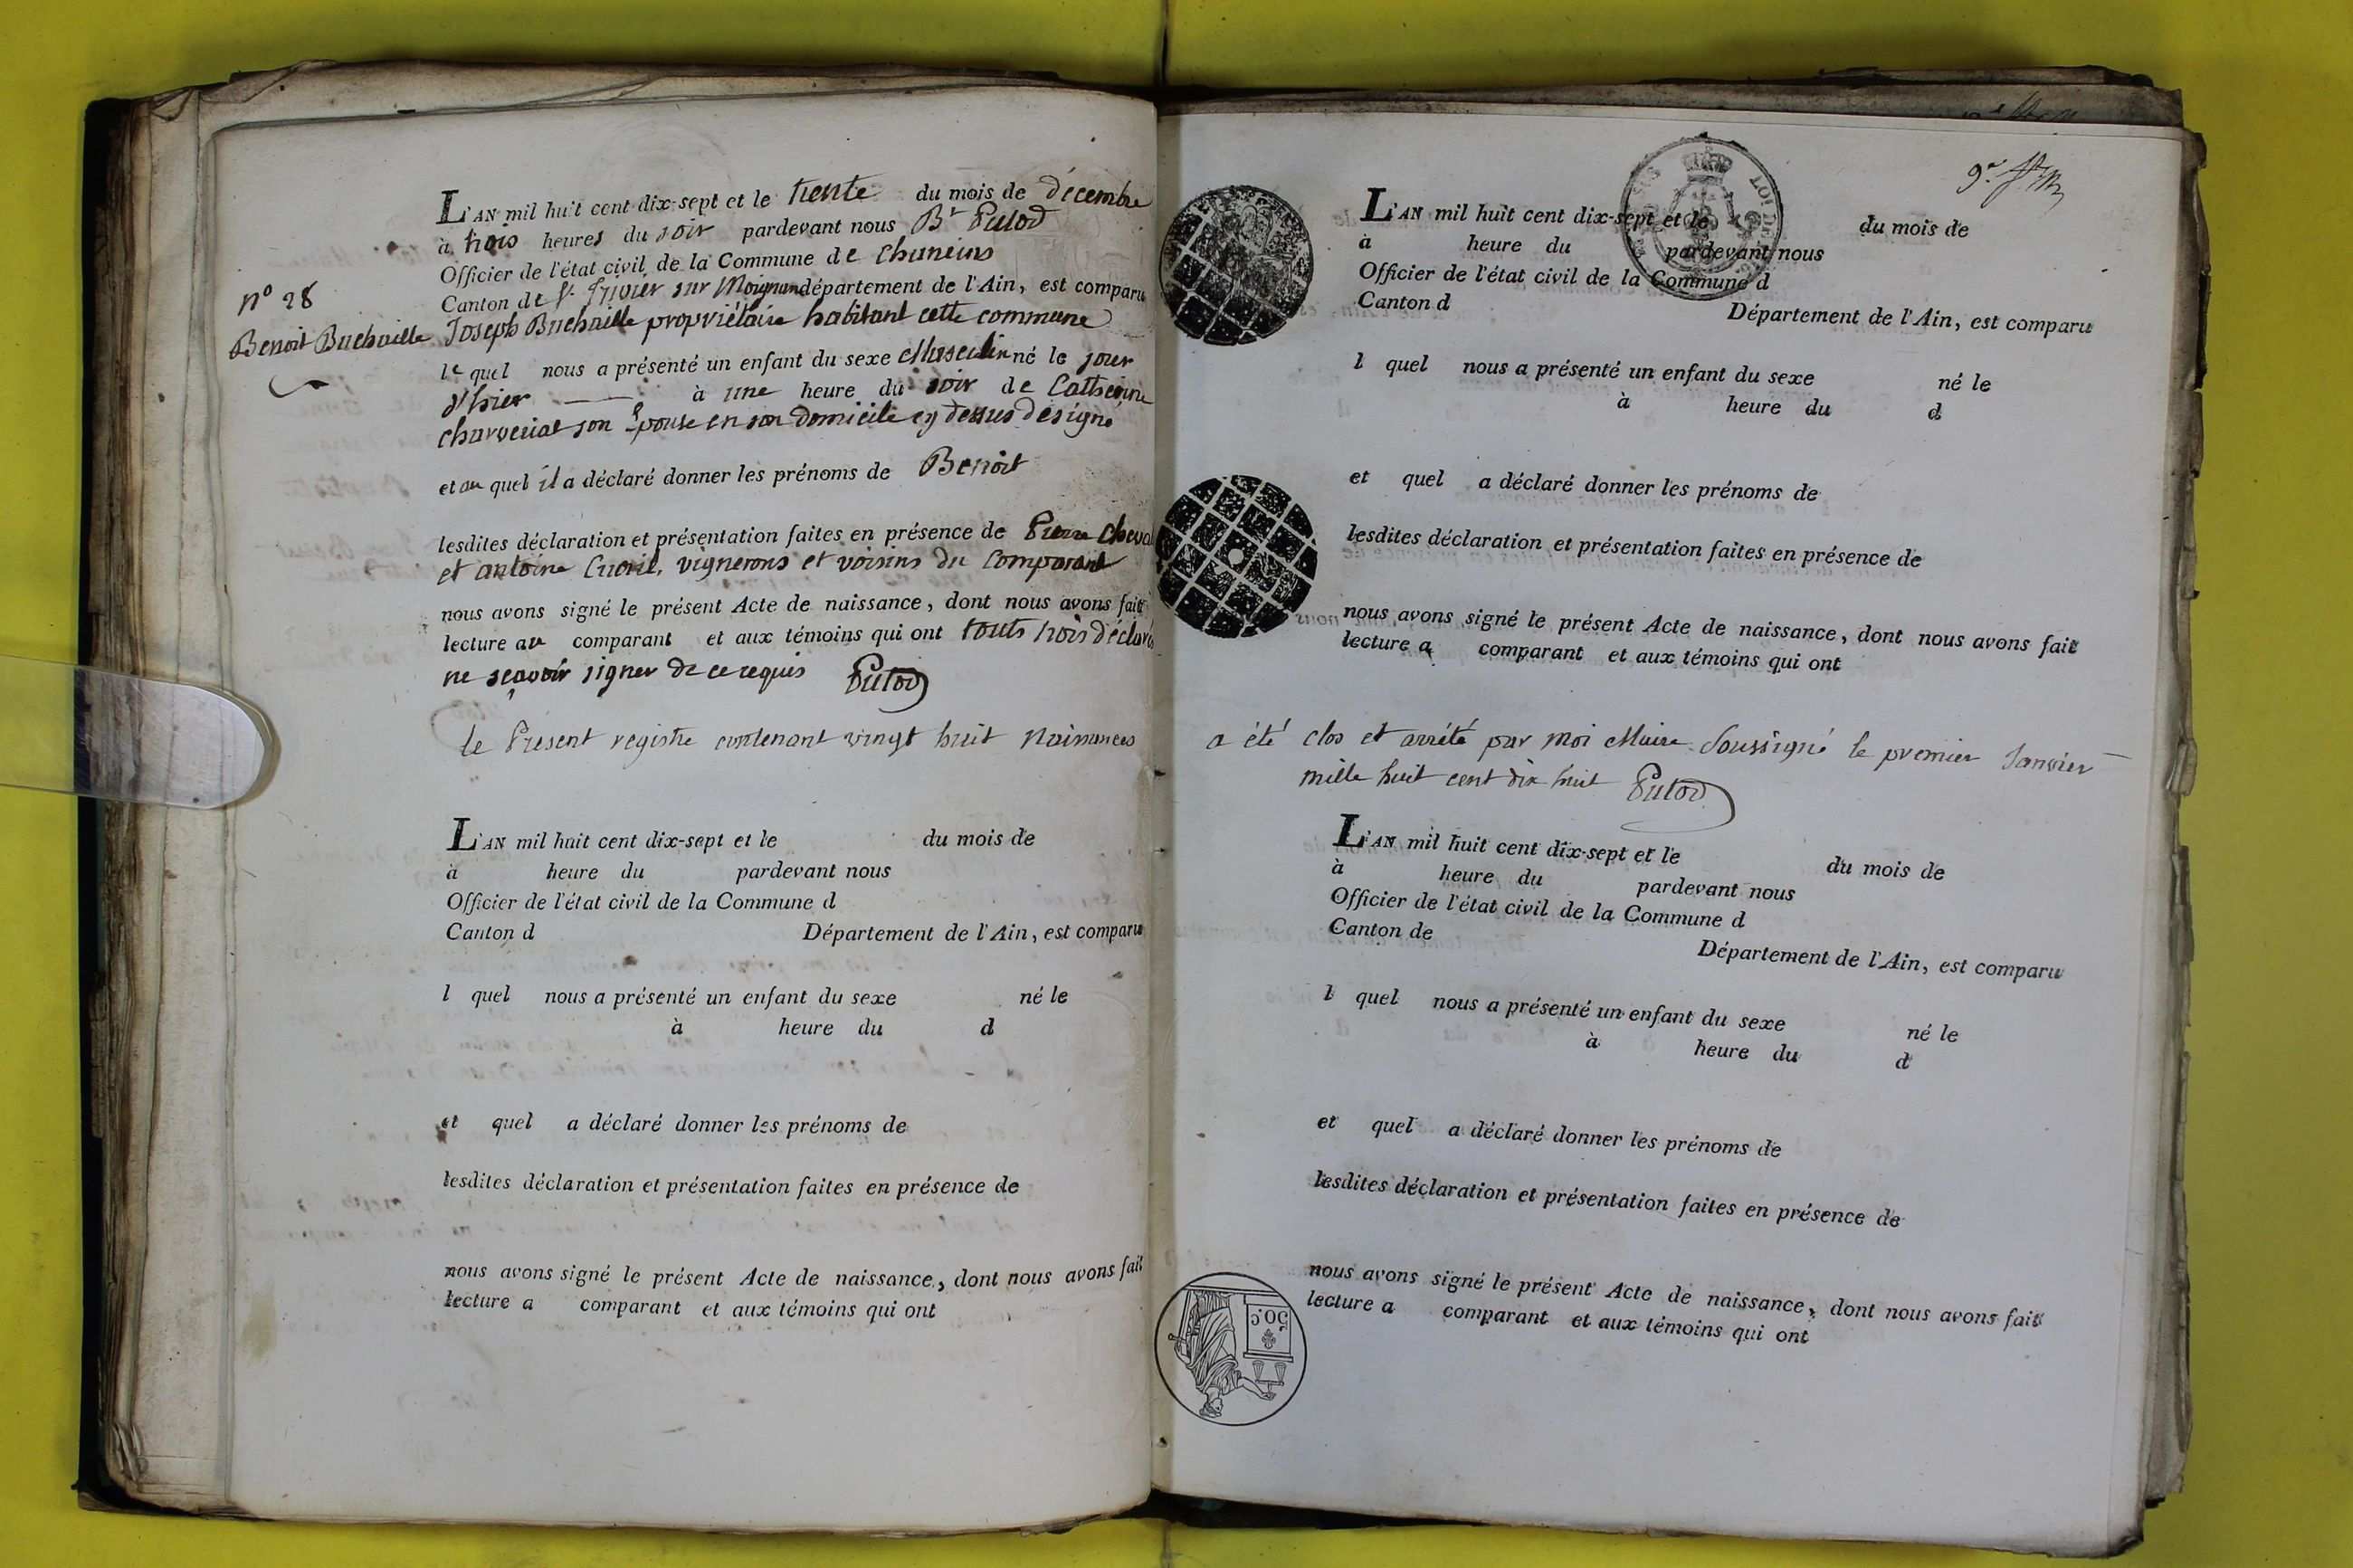 L'AN mil huit cent dix-sept et le trente du mois de décembre
à trois heures du soir pardevant nous Bt Putod
Officier de l'état civil de la Commune de Chaneins
Canton de St. Trivier sur Moignans département de l'Ain, est comparu
n° 28
Benoit Buchaille
Joseph Buchaille propriétaire habitant cette commune
le quel nous a présenté un enfant du sexe Masculin né le jour
d'hier à une heure du soir de Catherine
charveriat son Epouse en son domicile cy dessus désigné
et au quel il a déclaré donner les prénoms de Benoit
lesdites déclaration et présentation faites en présence de Pierre
et antoine vignerons et voisins du Comparant
nous avons signé le présent Acte de naissance, dont nous avons fait
lecture au comparant et aux témoins qui ont touts trois déclaré
ne sçavoir signer de ce requis Putod
le Présent registre contenant vingt huit Naissances
L'AN mil huit cent dix-sept et le du mois de
à heure du pardevant nous
Officier de l'état civil de la Commune d
Canton d Département de l'Ain, est comparu
l quel nous a présenté un enfant du sexe né le
à heure du d
et quel a déclaré donner les prénoms de
lesdites déclaration et présentation faites en présence de
nous avons signé le présent Acte de naissance, dont nous avons fait
lecture a comparant et aux témoins qui ont
L'AN mil huit cent dix-sept et le du mois de
à heure du pardevant nous
Officier de l'état civil de la Commune d
Canton d Département de l'Ain, est comparu
l quel nous a présenté un enfant du sexe né le
à heure du d
et quel a déclaré donner les prénoms de
lesdites déclaration et présentation faites en présence de
nous avons signé le présent Acte de naissance, dont nous avons fait
lecture a comparant et aux témoins qui ont
a été clos et arrêté par moi Maire Soussigné le premier Janvier
mille huit cent dix huit Putod
L'AN mil huit cent dix-sept et le du mois de
à heure du pardevant nous
Officier de l'état civil de la Commune d
Canton de Département de l'Ain, est comparu
l quel nous a présenté un enfant du sexe né le
à heure du d
et quel a déclaré donner les prénoms de
lesdites déclaration et présentation faites en présence de
nous avons signé le présent Acte de naissance, dont nous avons fait
lecture a comparant et aux témoins qui ont
50.c